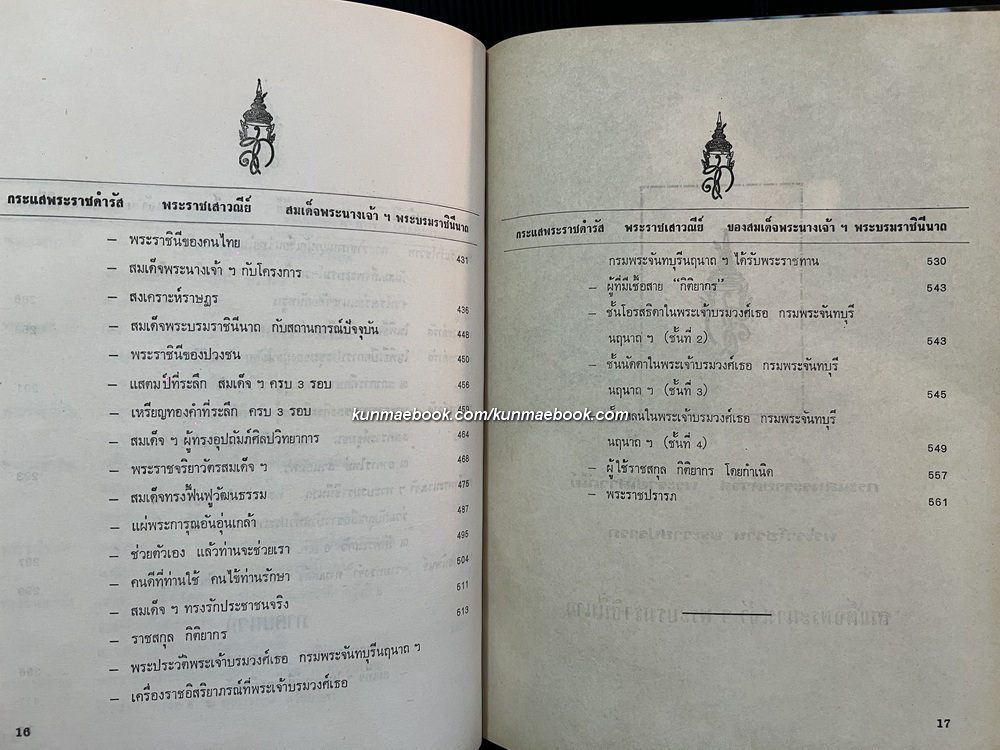 กระแสพระราชดำรัส พระราชเสาวณีย์ สมเด็จพระนางเจ้า ฯ พระบรมราชินีนาถ
– พระราชินีของคนไทย 431
– สมเด็จพระนางเจ้า ฯ กับโครงการ
– สงเคราะห์ราษฎร 436
– สมเด็จพระบรมราชินีนาถ กับสถานการณ์ปัจจุบัน 448
– พระราชินีของปวงชน 450
– แสตมป์ที่ระลึก สมเด็จ ฯ ครบ 3 รอบ 456
– เหรียญทองคำที่ระลึก ครบ 3 รอบ
– สมเด็จ ฯ ผู้ทรงอุปถัมภ์ศิลปวิทยาการ 464
– พระราชจริยาวัตรสมเด็จ ฯ 468
– สมเด็จทรงฟื้นฟูวัฒนธรรม 475
– แผ่พระการุณอันอุ่นเกล้า 487
– ช่วยตัวเอง แล้วท่านจะช่วยเรา 495
– คนดีที่ท่านใช้ คนไข้ท่านรักษา 504
– สมเด็จ ฯ ทรงรักประชาชนจริง 511
– ราชสกุล กิติยากร 513
– พระประวัติพระเจ้าบรมวงศ์เธอ กรมพระจันทบุรีนฤนาถ ฯ
– เครื่องราชอิสริยาภรณ์ที่พระเจ้าบรมวงศ์เธอ
16
กระแสพระราชดำรัส พระราชเสาวณีย์ ของสมเด็จพระนางเจ้า ฯ พระบรมราชินีนาถ
กรมพระจันทบุรีนฤนาถ ฯ ได้รับพระราชทาน 530
– ผู้ที่มีเชื้อสาย “กิติยากร” 543
– ชั้นโอรสธิดาในพระเจ้าบรมวงศ์เธอ กรมพระจันทบุรี
นฤนาถ ฯ (ชั้นที่ 2) 543
– ชั้นนัดดาในพระเจ้าบรมวงศ์เธอ กรมพระจันทบุรี
นฤนาถ ฯ (ชั้นที่ 3) 545
kunmaebook.com/kunmaebook.com
ในพระเจ้าบรมวงศ์เธอ กรมพระจันทบุรี
นฤนาถ ฯ (ชั้นที่ 4) 549
– ผู้ใช้ราชสกุล กิติยากร โดยกำเนิด 557
– พระราชปรารภ 561
17